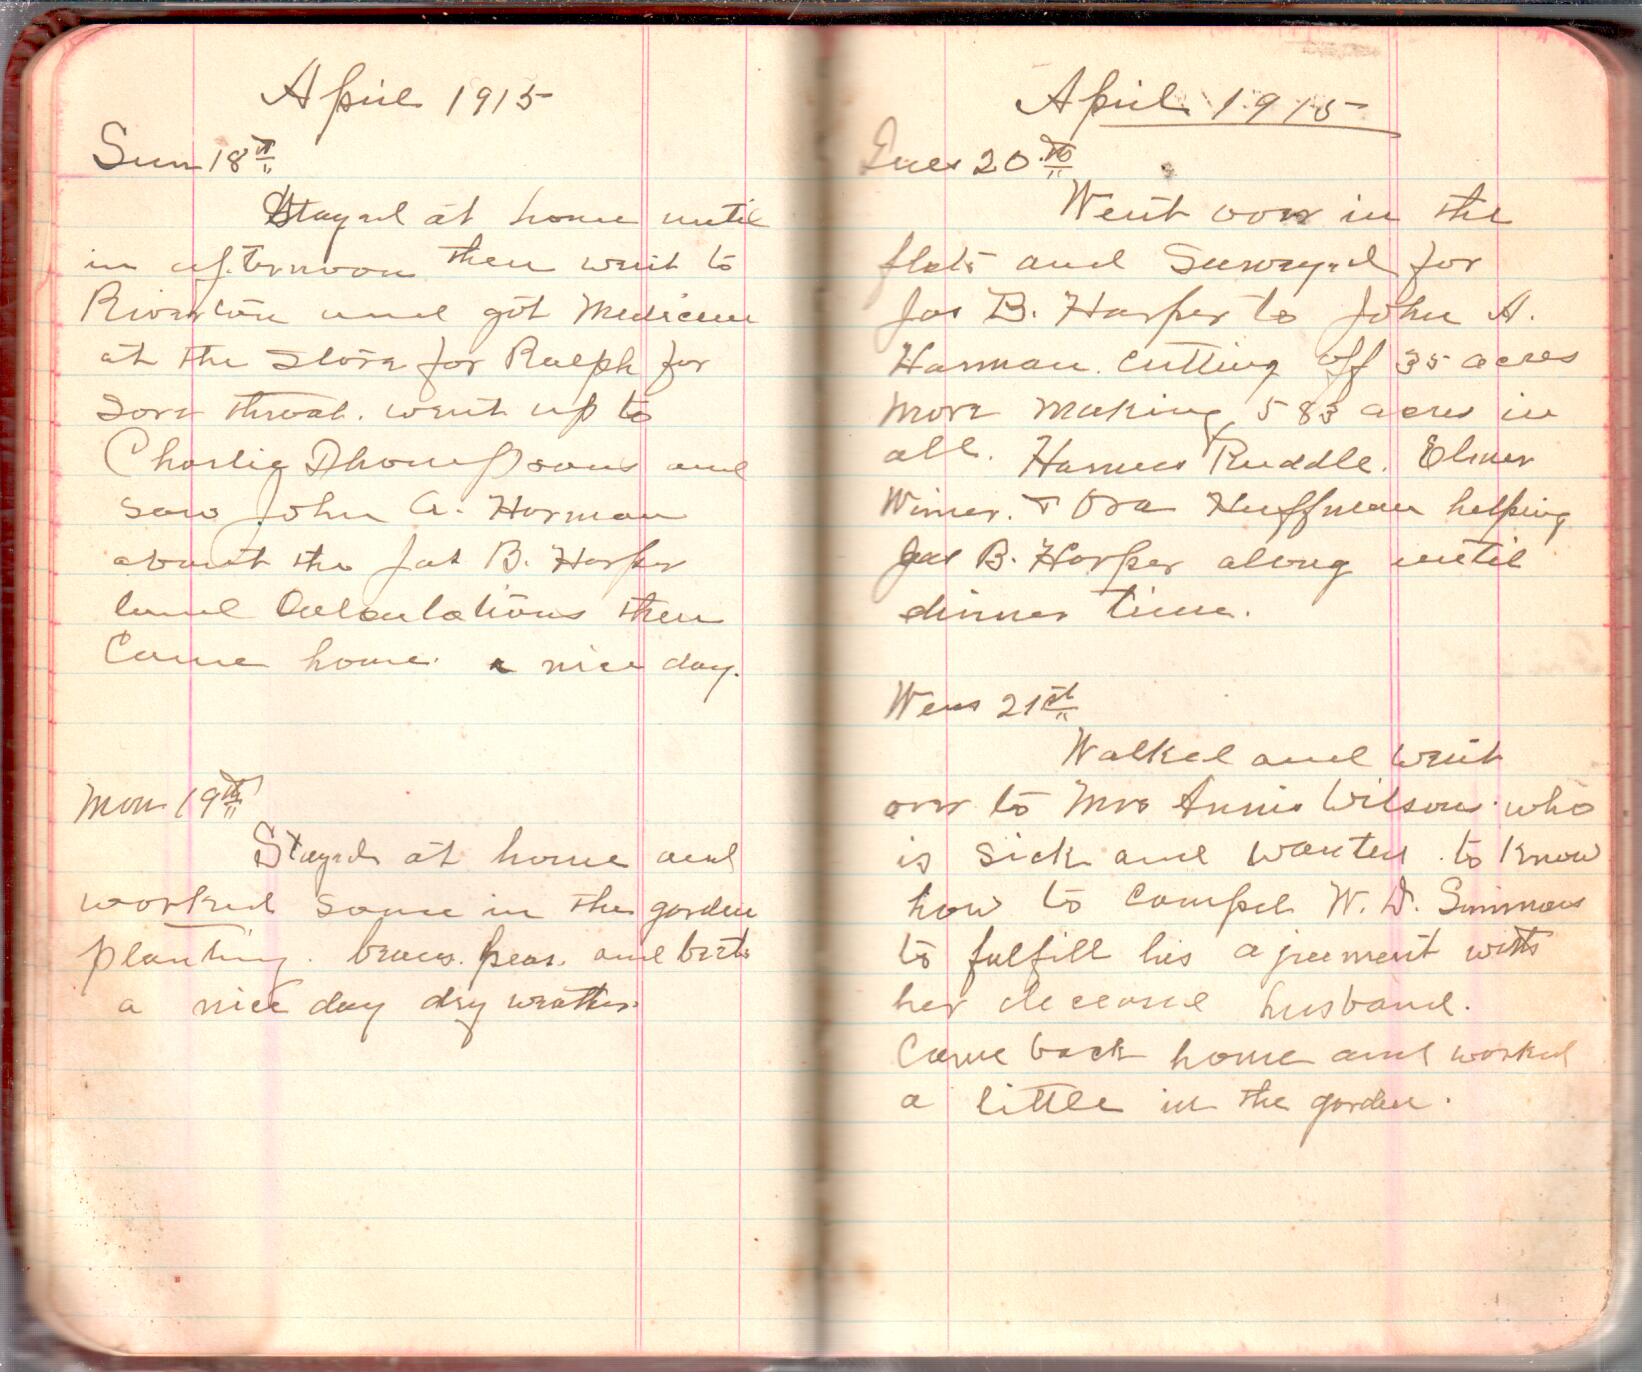 April 1915
Sun 18th
Stayed at home until
in afternoon then went to
Riverton and got Medicine
at the store for Ralph for
sore throat. went up to
Charlie Thompsons and
saw John A. Harman
about the Jas B. Harper
land Calculations then
Came home. a nice day.
Mon 19th
Stayed at home and
worked some in the garden
planting. beans. peas. and beets
a nice day dry weather.
April 1915
Tues 20th
Went over in the
flats and Surveyed for
Jas B. Harper to John A.
Harman. cutting off 35 acres
more making 583 acres in
all. Harness Ruddle. Elmer
Wimer. & Ora Huffman helping
Jas B. Harper along until
dinner time.
Wens 21st
Walked and went
over to Mrs Annie Wilsons who
is sick and wanted to know
how to compel W. D. Simmons
to fulfill his agreement with
her deceased husband.
Came back home and worked
a little in the garden.